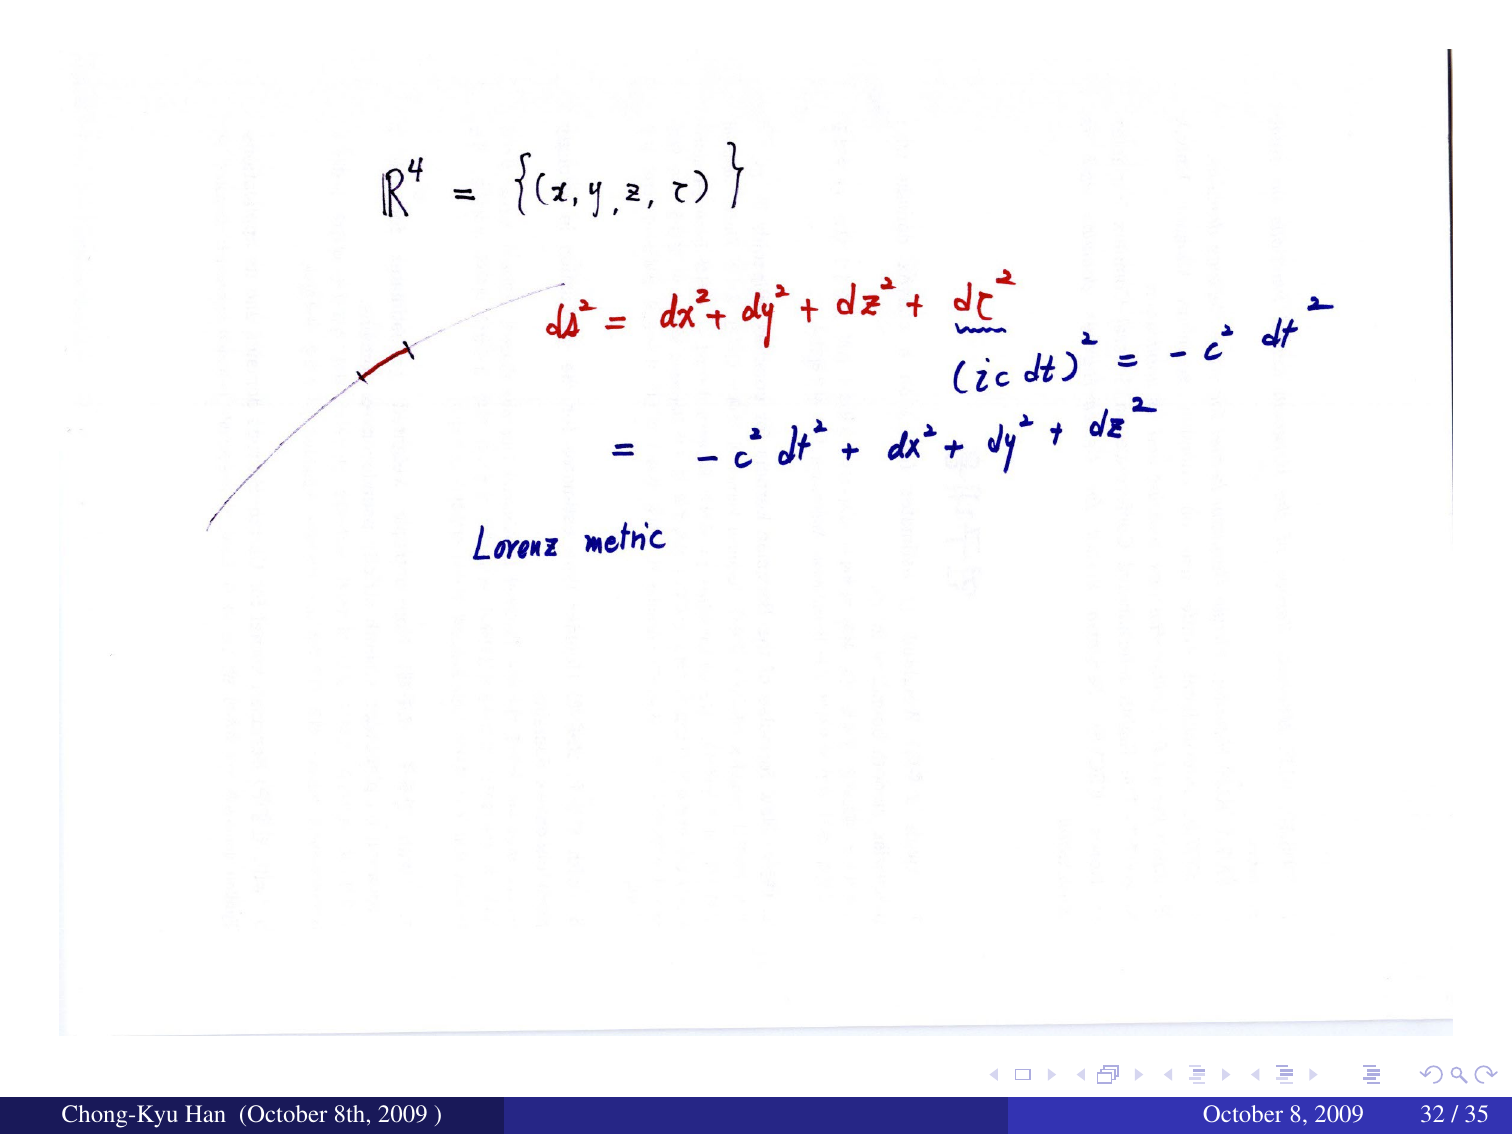 ℝ⁴ = {(x, y, z, τ)}
ds² = dx² + dy² + dz² + dτ²
(ic dt)² = - c² dt²
= - c² dt² + dx² + dy² + dz²
Lorenz metric
Chong-Kyu Han (October 8th, 2009 ) October 8, 2009 32 / 35